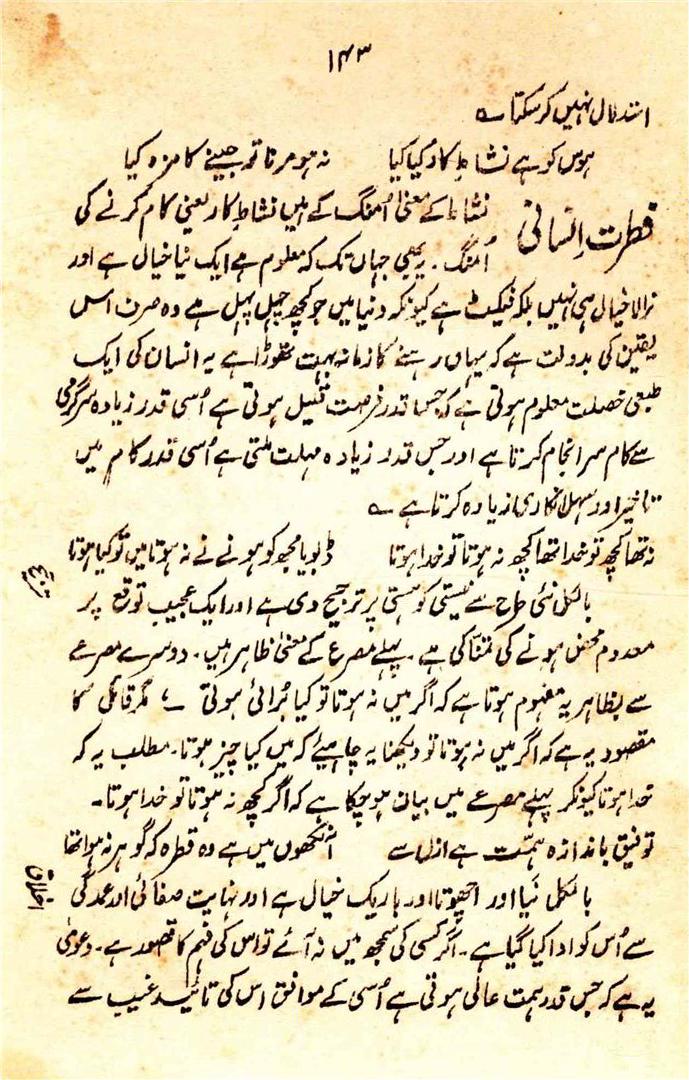 ۱۴۳
استدلال نہیں کر سکتا ے
ہوس کو ہے نشاطِ کار کیا کیا نہ ہو مرنا تو جینے کا مزہ کیا
فطرت انسانی
نشاط کے معنی اُمنگ کے ہیں نشاطِ کار یعنی کام کرنے کی
اُمنگ ۔ یہ بھی جہاں تک کہ معلوم ہے ایک نیا خیال ہے اور
نرالا خیال ہی نہیں بلکہ فیکٹ ہے کیونکہ دنیا میں جو کچھ چہل پہل ہے وہ صرف اس
یقین کی بدولت ہے کہ یہاں رہنے کا زمانہ بہت تھوڑا ہے یہ انسان کی ایک
طبعی خصلت معلوم ہوتی ہے کہ جس قدر فرصت قلیل ہوتی ہے اُسی قدر زیادہ سرگرمی
سے کام سرانجام کرتا ہے اور جس قدر زیادہ مہلت ملتی ہے اُسی قدر کام میں
تاخیر اور سہل انکاری زیادہ کرتا ہے ے
نہ تھا کچھ تو خدا تھا کچھ نہ ہوتا تو خدا ہوتا ڈبویا مجھ کو ہونے نے نہ ہوتا میں تو کیا ہوتا
بالکل نئی طرح سے نیستی کو ہستی پر ترجیح دی ہے اور ایک عجیب توقع پر
معدوم محض ہونے کی تمنا کی ہے ۔ پہلے مصرع کے معنی ظاہر ہیں ۔ دوسرے مصرعے
سے بظاہر یہ مفہوم ہوتا ہے کہ اگر میں نہ ہوتا تو کیا بُرائی ہوتی ، مگر قائل کا
مقصود یہ ہے کہ اگر میں نہ ہوتا تو دیکھنا یہ چاہیئے کہ میں کیا چیز ہوتا ۔ مطلب یہ کہ
خدا ہوتا کیونکر پہلے مصرعے میں بیان ہوچکا ہے کہ اگر کچھ نہ ہوتا تو خدا ہوتا ۔
توفیق باندازہ ہمّت ہے ازل سے آنکھوں میں ہے وہ قطرہ کہ گوہر نہ ہوا تھا
اخلاق
بالکل نَیا اور اچھوتا اور باریک خیال ہے اور نہایت صفائی اور عمدگی
سے اُس کو ادا کیا گیا ہے ۔ اگر کسی کی سمجھ میں نہ آئے تو اس کی فہم کا قصور ہے ۔ دعویٰ
یہ ہے کہ جس قدر ہمت عالی ہوتی ہے اُسی کے موافق اس کی تائید غیب سے